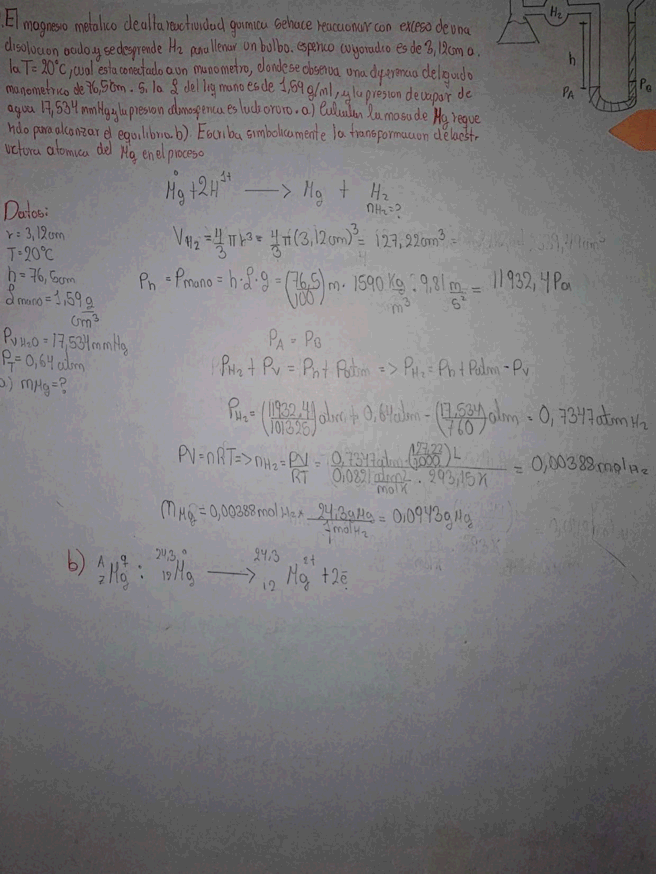 El magnesio metalico de alta reactividad quimica se hace reaccionar con exceso de una
disolucion acida y se desprende H₂ para llenar un bulbo. esferico cuyo radio es de 3,12cm a
la T=20°C, cual esta conectado a un manometro, donde se observa una diferencia de liquido
manometrico de 76,5cm. Si la ρ del liq mano es de 1,59 g/ml, y la presion de vapor de
agua 17,534 mmHg y la presion atmosferica es la de oruro. a) Calcular la masa de Mg reque
rida para alcanzar el equilibrio. b) Escriba simbolicamente la transformacion de la est-
ructura atomica del Mg en el proceso
H₂
h
PA
PB
Mg⁰ + 2H¹⁺ ⟶ Mg + H₂
nH₂=?
Datos:
r = 3,12cm
T=20°C
h = 76,5cm
ρmano=1,59 g/cm³
PvH₂O = 17,534 mmHg
PT = 0,64 atm
a) mMg=?
VH₂ = 4/3 πr³ = 4/3 π(3,12cm)³ = 127,22cm³
Ph = Pmano = h·ρ·g = (76,5/100) m · 1590 Kg/m³ · 9,81 m/s² = 11932,4 Pa
PA = PB
PH₂ + Pv = Ph + Patm => PH₂ = Ph + Patm - Pv
PH₂ = (11932,4/101325) atm + 0,64 atm - (17,534/760) atm = 0,7347 atm H₂
PV=nRT => nH₂ = PV/RT = 0,7347 atm · (127,22/1000) L / 0,0821 atm l/mol K · 293,15K = 0,00388 mol H₂
mMg = 0,00388 mol H₂ × 24,3 g Mg / 1 mol H₂ = 0,0943 g Mg
b) ᴬ_Z Mg^q : ²⁴,³₁₂ Mg⁰ ⟶ ²⁴,³₁₂ Mg²⁺ + 2ē